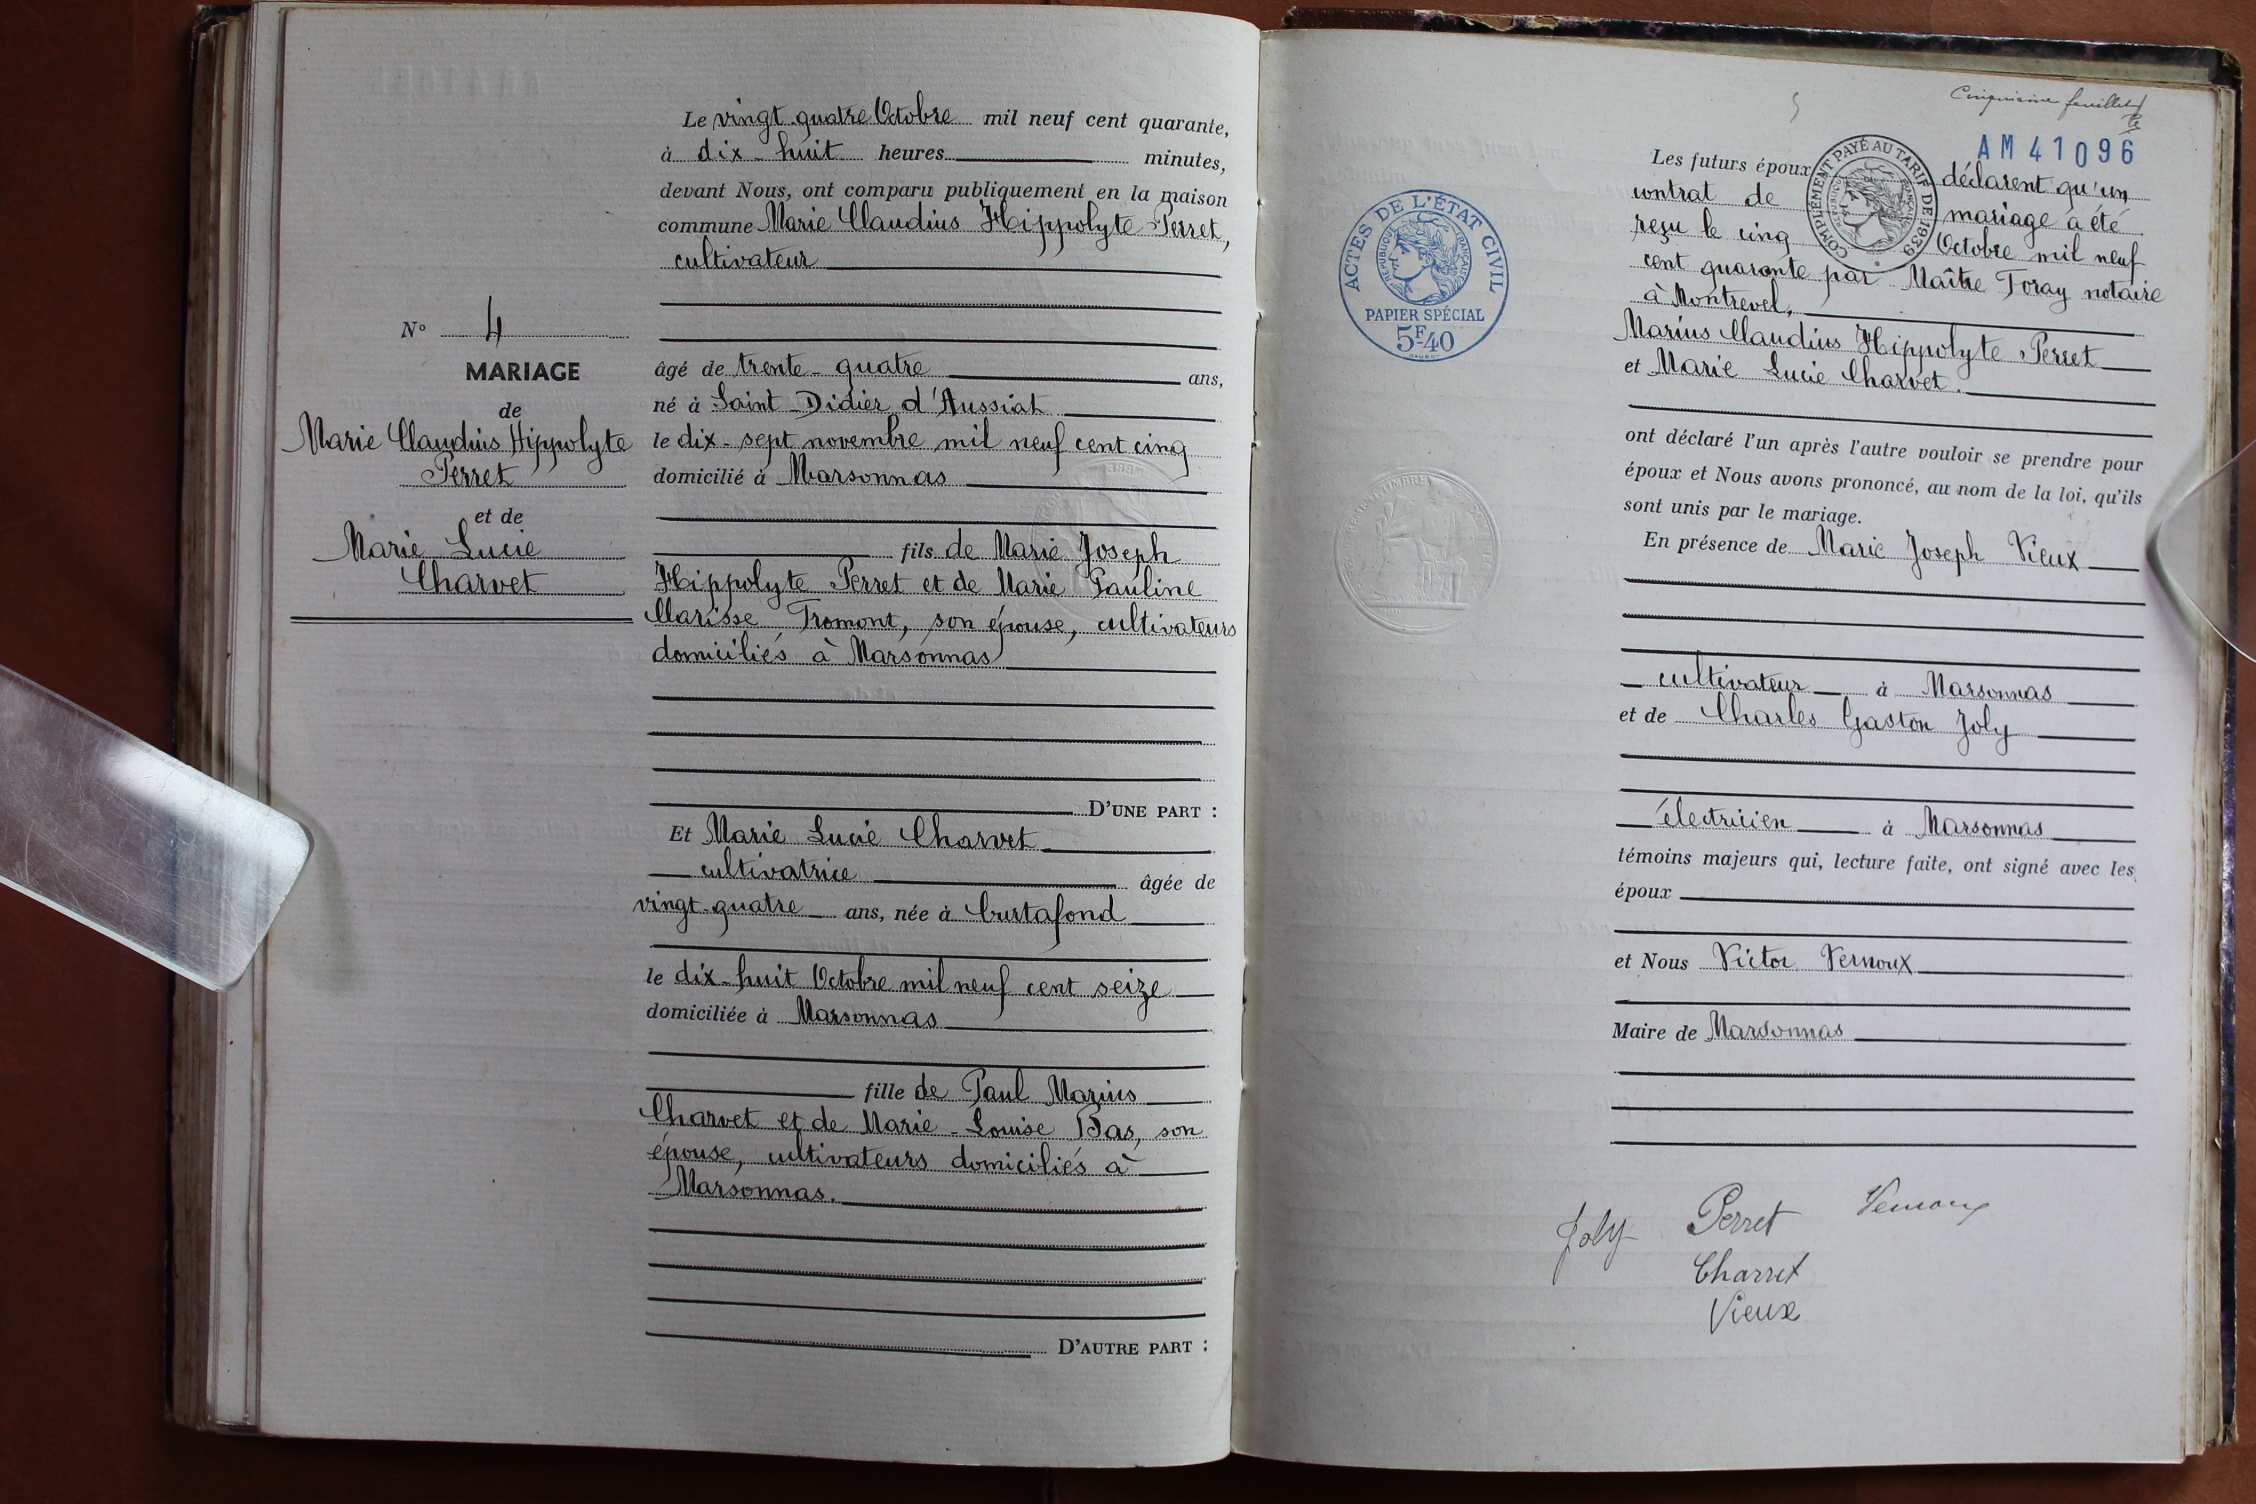 Le vingt quatre Octobre mil neuf cent quarante,
à dix-huit heures minutes,
devant Nous, ont comparu publiquement en la maison
commune Marie Claudius Hippolyte Perret,
cultivateur
N° 4
MARIAGE
de
Marie Claudius Hippolyte
Perret
et de
Marie Lucie
Charvet
âgé de trente-quatre ans,
né à Saint-Didier d'Aussiat
le dix-sept novembre mil neuf cent cinq
domicilié à Marsonnas
fils de Marie Joseph
Hippolyte Perret et de Marie Pauline
Clarisse Fromont, son épouse, cultivateurs
domiciliés à Marsonnas
D'UNE PART :
Et Marie Lucie Charvet
cultivatrice âgée de
vingt-quatre ans, née à Curtafond
le dix-huit Octobre mil neuf cent seize
domiciliée à Marsonnas
fille de Paul Marius
Charvet et de Marie-Louise Bas, son
épouse, cultivateurs domiciliés à
Marsonnas.
D'AUTRE PART :
5
Cinquième feuillet
AM 41096
ACTES DE L'ÉTAT CIVIL
RÉPUBLIQUE FRANÇAISE
PAPIER SPÉCIAL
5F40
COMPLÉMENT PAYÉ AU TARIF DE 1939
RÉPUBLIQUE FRANÇAISE
Les futurs époux déclarent qu'un
contrat de mariage a été
reçu le cinq Octobre mil neuf
cent quarante par Maître Foray notaire
à Montrevel,
Marius Claudius Hippolyte Perret
et Marie Lucie Charvet.
ont déclaré l'un après l'autre vouloir se prendre pour
époux et Nous avons prononcé, au nom de la loi, qu'ils
sont unis par le mariage.
En présence de Marie Joseph Vieux
cultivateur à Marsonnas
et de Charles Gaston Joly
électricien à Marsonnas
témoins majeurs qui, lecture faite, ont signé avec les
époux
et Nous Victor Vernoux
Maire de Marsonnas
Joly Perret Vernoux
Charvet
Vieux